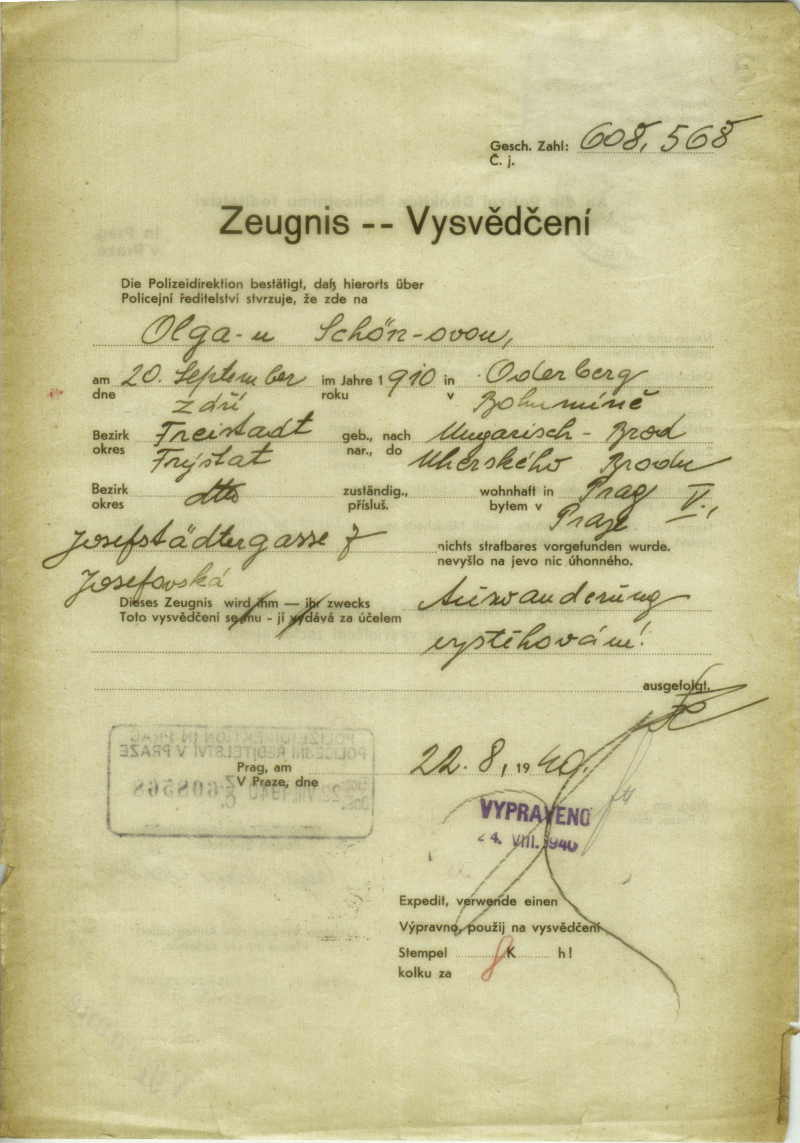 Gesch. Zahl: 608,568
Č. j.
Zeugnis -- Vysvědčení
Die Polizeidirektion bestätigt, daß hierorts über
Policejní ředitelství stvrzuje, že zde na
Olga-u Schön-ovou,
am 20. September im Jahre 1910 in Oderberg
dne září roku v Bohumíně
Bezirk Freistadt geb., nach Ungarisch-Brod
okres Frýštat nar., do Uherského Brodu
Bezirk dtto zuständig., wohnhaft in Prag V.,
okres přísluš. bytem v Praze
Josefstädtergasse 7 nichts strafbares vorgefunden wurde.
Josefovská nevyšlo na jevo nic úhonného.
Dieses Zeugnis wird ihm — ihr zwecks Auswanderung
Toto vysvědčení se mu - jí vydává za účelem
vystěhování.
ausgefolgt.
POLIZEIDIREKTION IN PRAG
POLICEJNÍ ŘEDITELSTVÍ V PRAZE
Prag, am 22. 8. 1940.
V Praze, dne
608568
VYPRAVENO
24. VIII. 1940
Expedit, verwende einen
Výpravno, použij na vysvědčení
Stempel 8 K h!
kolku za